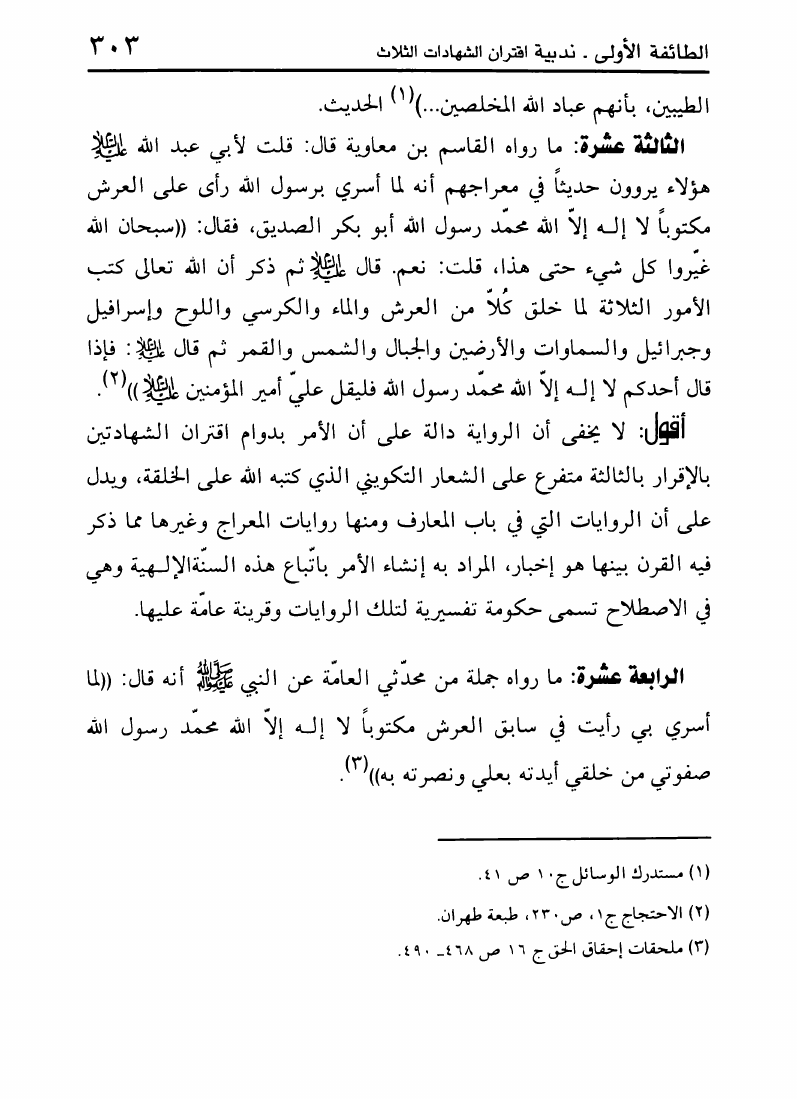 الطائفة الأولى . ندبية اقتران الشهادات الثلاث ٣٠٣
الطيبين، بأنهم عباد الله المخلصين...)(١) الحديث.
الثالثة عشرة: ما رواه القاسم بن معاوية قال: قلت لأبي عبد الله عليه السلام
هؤلاء يروون حديثاً في معراجهم أنه لما أسري برسول الله رأى على العرش
مكتوباً لا إلـه إلاّ الله محمّد رسول الله أبو بكر الصديق، فقال: ((سبحان الله
غيّروا كل شيء حتى هذا، قلت: نعم. قال عليه السلام ثم ذكر أن الله تعالى كتب
الأمور الثلاثة لما خلق كُلاّ من العرش والماء والكرسي واللوح وإسرافيل
وجبرائيل والسماوات والأرضين والجبال والشمس والقمر ثم قال عليه السلام: فإذا
قال أحدكم لا إلـه إلاّ الله محمّد رسول الله فليقل عليّ أمير المؤمنين عليه السلام))(٢).
أقول: لا يخفى أن الرواية دالة على أن الأمر بدوام اقتران الشهادتين
بالإقرار بالثالثة متفرع على الشعار التكويني الذي كتبه الله على الخلقة، ويدل
على أن الروايات التي في باب المعارف ومنها روايات المعراج وغيرها مما ذكر
فيه القرن بينها هو إخبار، المراد به إنشاء الأمر باتّباع هذه السنّةالإلـهية وهي
في الاصطلاح تسمى حكومة تفسيرية لتلك الروايات وقرينة عامّة عليها.
الرابعة عشرة: ما رواه جملة من محدّثي العامّة عن النبي صلى الله عليه وآله أنه قال: ((لما
أسري بي رأيت في سابق العرش مكتوباً لا إلـه إلاّ الله محمّد رسول الله
صفوتي من خلقي أيدته بعلي ونصرته به))(٣).
(١) مستدرك الوسائل ج١٠ ص ٤١.
(٢) الاحتجاج ج١، ص٢٣٠، طبعة طهران.
(٣) ملحقات إحقاق الحق ج ١٦ ص ٤٦٨ـ ٤٩٠.